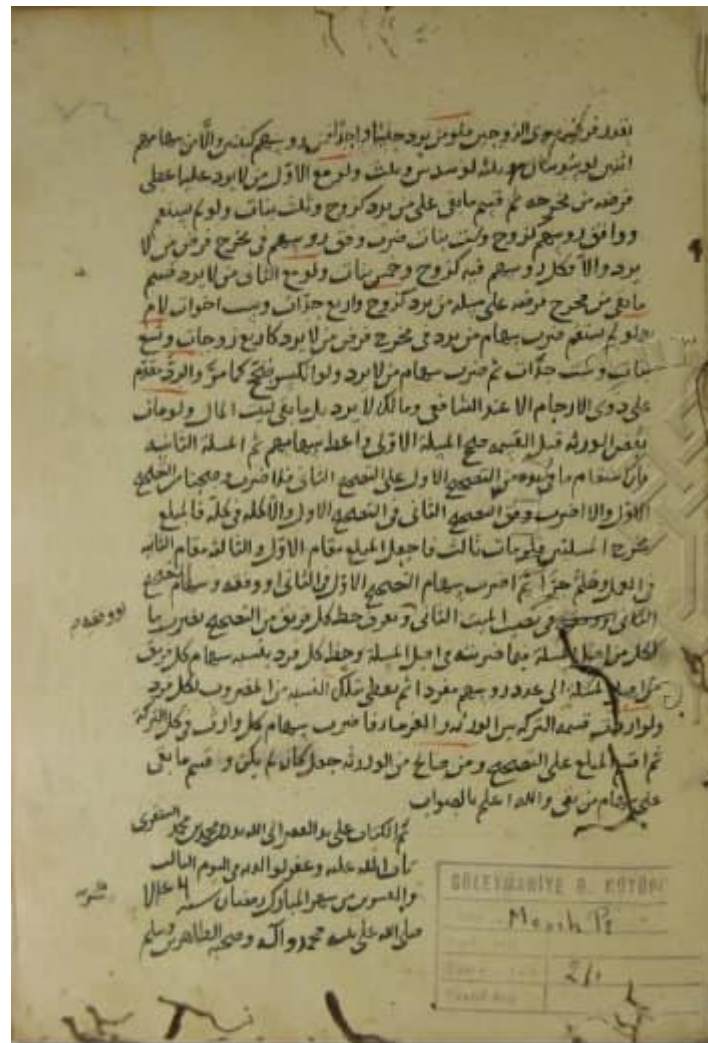 بقدر فروضهم سوى الزوجين فلو من يرد جنسا واحدا فمن رؤسهم كبنتين والا من سهامهم
اثنين لو سدسان وثلثة لو سدس وثلث ولو مع الاول من لا يرد عليه اعطى
فرضه من مخرجه ثم قسم ما بقى على من يرد كزوج وثلث بنات ولو لم يستقم
ووافق رؤسهم كزوج وست بنات ضرب وفق رؤسهم فى مخرج فرض من لا
يرد والا فكل رؤسهم فيه كزوج وخمس بنات ولو مع الثانى من لا يرد قسم
ما بقى من مخرج فرضه على مسئلة من يرد كزوج واربع جدات وست اخوات لام
ولو لم يستقم ضرب سهام من يرد فى مخرج فرض من لا يرد كاربع زوجات وتسع
بنات وست جدات ثم ضرب سهام من لا يرد ولو انكسر صحح كما مر والرد مقدم
على ذوى الارحام الا عند الشافعى ومالك لا يرد بل ما بقى لبيت المال ولو مات
بعض الورثة قبل القسمة صحح المسئلة الاولى واعط سهامهم ثم المسئلة الثانية
فان استقام ما فى يده من التصحيح الاول على التصحيح الثانى فلا ضرب وصحتا من التصحيح
الاول والا اضرب وفق التصحيح الثانى فى التصحيح الاول والا كله فى كله فالمبلغ
مخرج المسئلتين ولو مات ثالث فاجعل المبلغ مقام الاول والثالثة مقام الثانية
فى العمل وهلم جرا ثم اضرب سهام التصحيح الاول فى الثانى او وفقه وسهام التصحيح
الثانى فى نصيب الميت الثانى وتعرف حظ كل فريق من التصحيح بضرب ما
او وفقه
لكل من اصل المسئلة فيما ضربته فى اصل المسئلة وحظ كل فرد بنسبة سهام كل فريق
من اصل المسئلة الى عدد رؤسهم مفردا ثم يعطى بتلك النسبة من المضروب لكل فرد
ولو اردت قسمة التركة بين الورثة والغرماء فاضرب سهام كل وارث فى كل التركة
ثم اقسم المبلغ على التصحيح ومن صالح من الورثة جعل كان لم يكن وقسم ما بقى
على سهام من بقى والله اعلم بالصواب
تم الكتاب على يد الفقير الى الله محمد بن محمد
تاب الله عليه وغفر لوالديه فى اليوم الثالث
والعشرين من شهر المبارك رمضان سنة
صلى الله على محمد وآله وصحبه الطاهرين وسلم
SÜLEYMANİYE